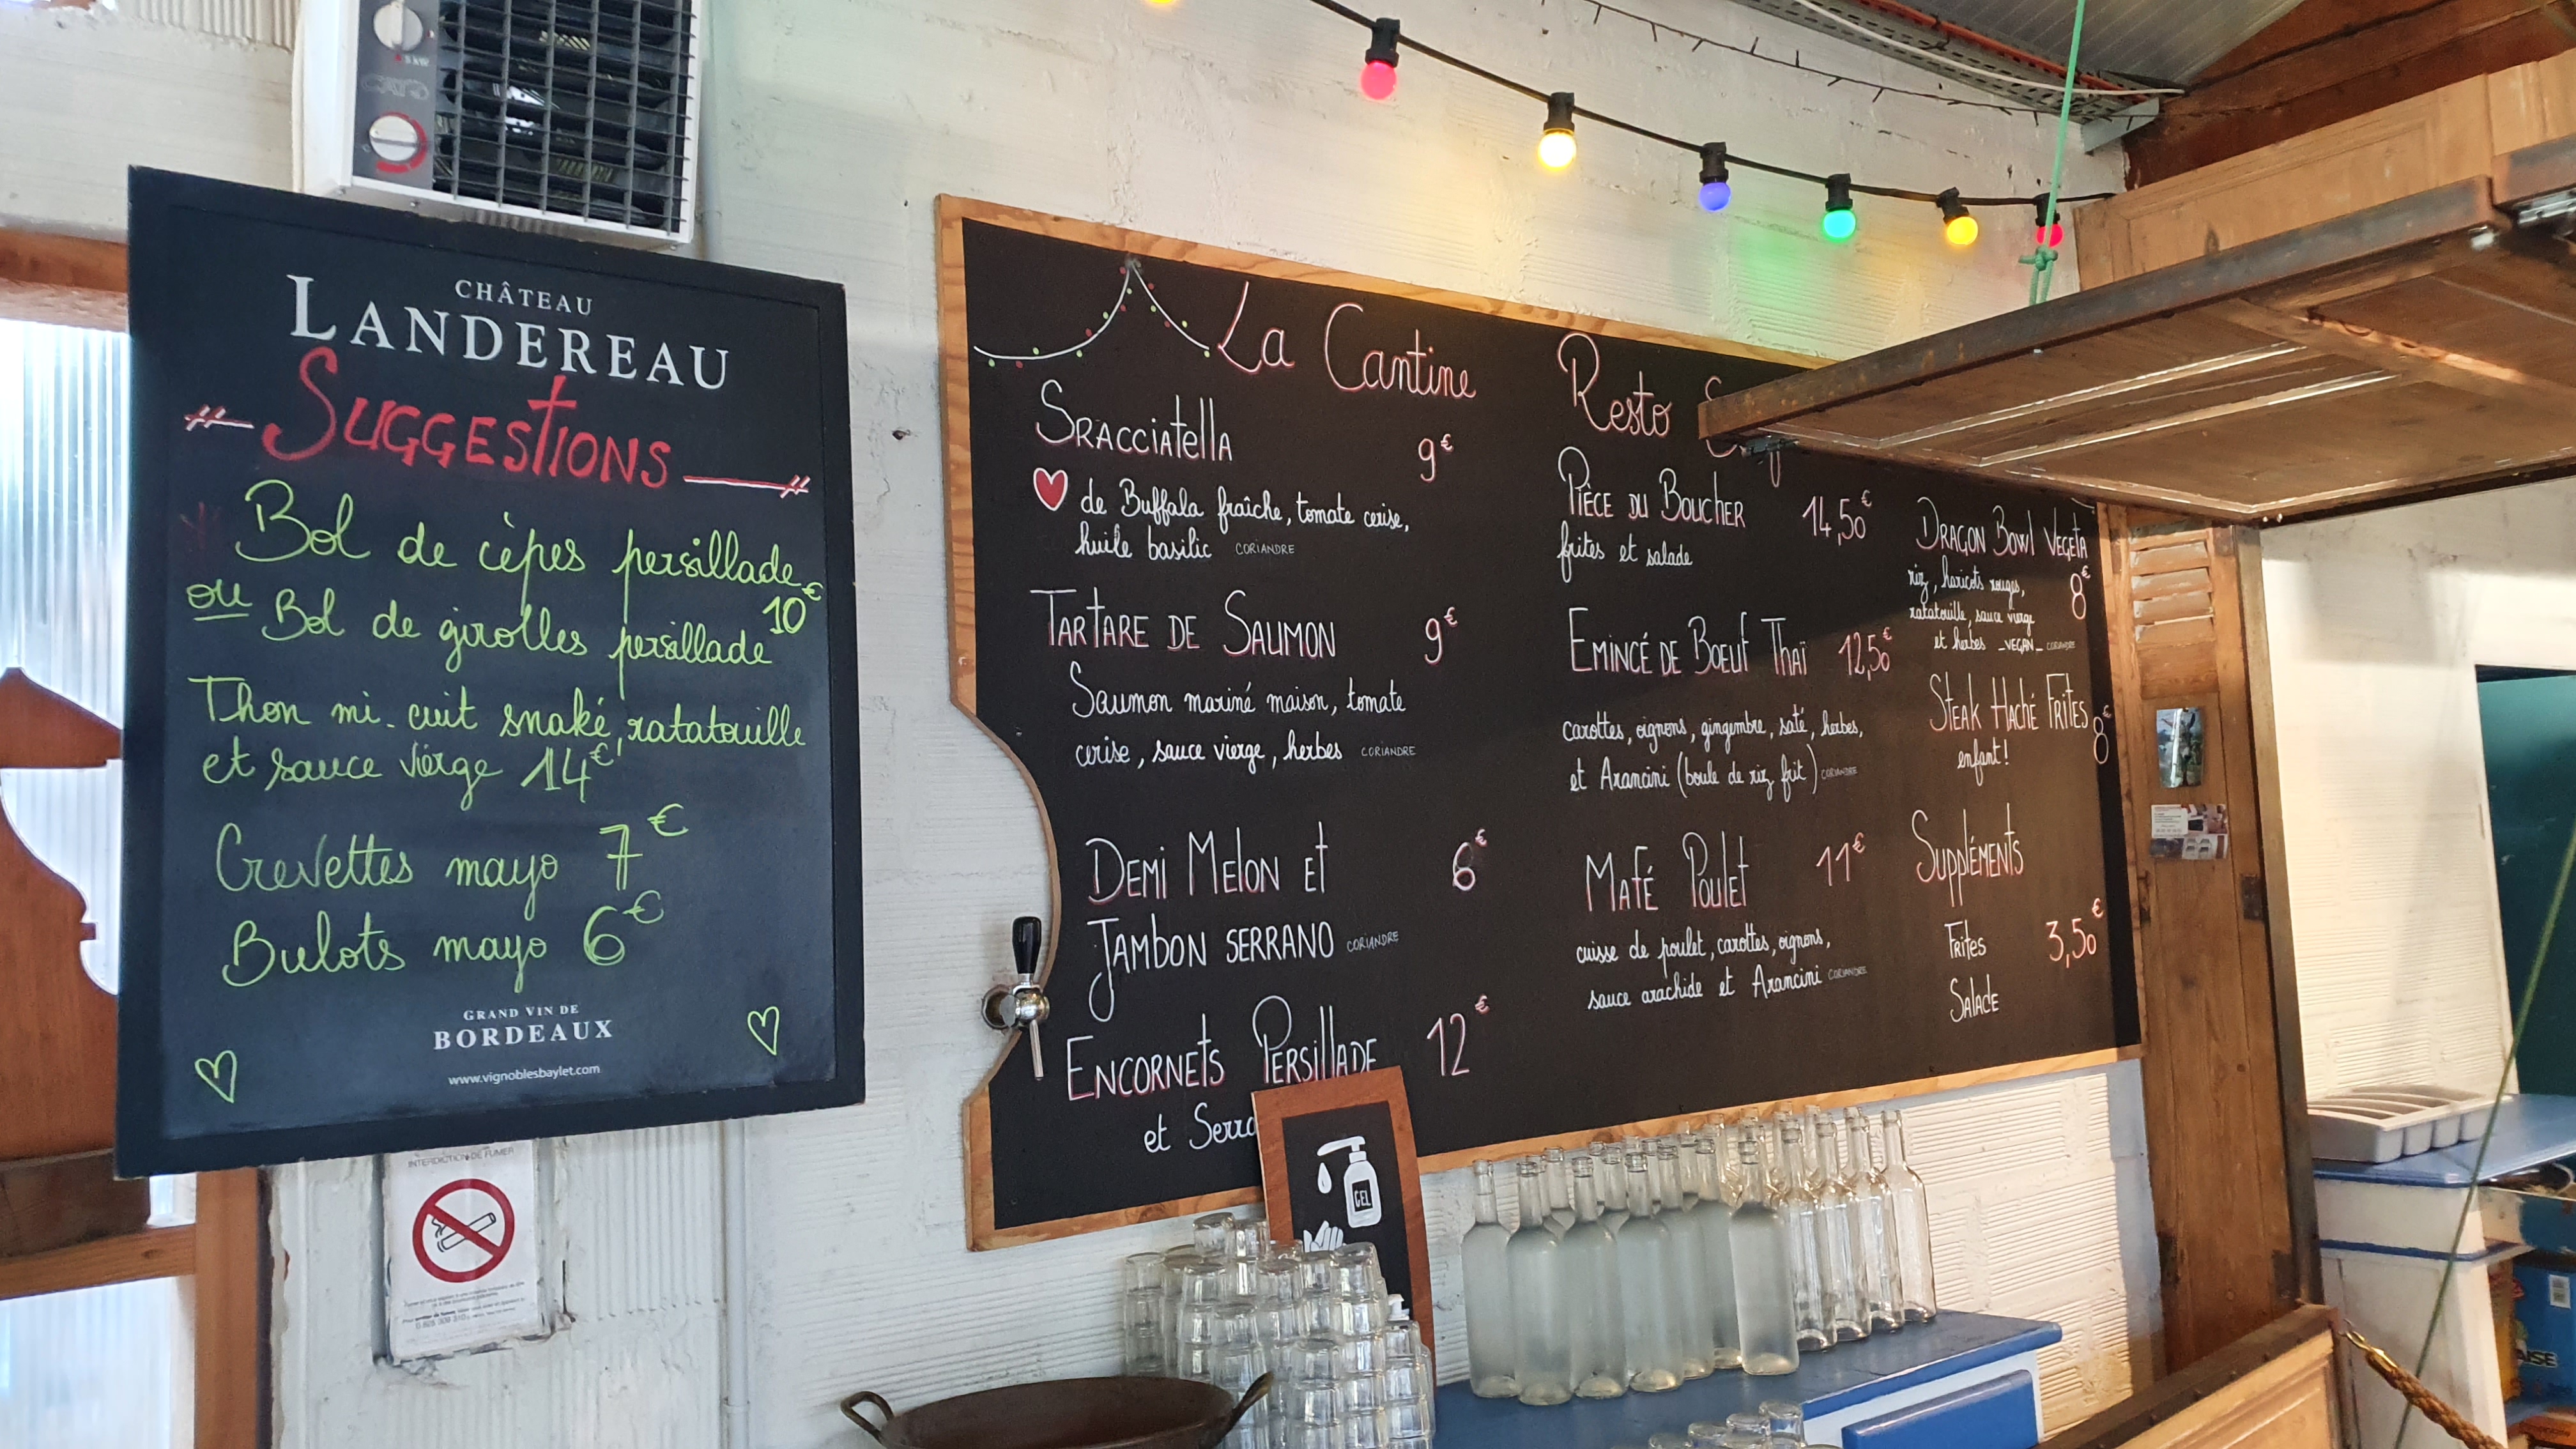 CHÂTEAU
LANDEREAU
SUGGESTIONS
Bol de cèpes persillade
ou Bol de girolles persillade 10€
Thon mi-cuit snaké, ratatouille
et sauce vierge 14€
Crevettes mayo 7€
Bulots mayo 6€
GRAND VIN DE
BORDEAUX
www.vignoblesbaylet.com
INTERDICTION DE FUMER
La Cantine
SRACCIATELLA 9€
de Buffala fraîche, tomate cerise,
huile basilic CORIANDRE
TARTARE DE SAUMON 9€
Saumon mariné maison, tomate
cerise, sauce vierge, herbes CORIANDRE
DEMI MELON ET 6€
JAMBON SERRANO CORIANDRE
ENCORNETS PERSILLADE 12€
et Serra
GEL
Resto
PIÈCE DU BOUCHER 14,50€
frites et salade
EMINCÉ DE BOEUF THAÏ 12,50€
carottes, oignons, gingembre, saté, herbes,
et Arancini (boule de riz frit) CORIANDRE
MAFÉ POULET 11€
cuisse de poulet, carottes, oignons,
sauce arachide et Arancini CORIANDRE
DRAGON BOWL VEGETA
riz, haricots rouges, 8€
ratatouille, sauce vierge
et herbes _VEGAN_ CORIANDRE
STEAK HACHÉ FRITES 8€
enfant!
SUPPLÉMENTS
FRITES 3,50€
SALADE